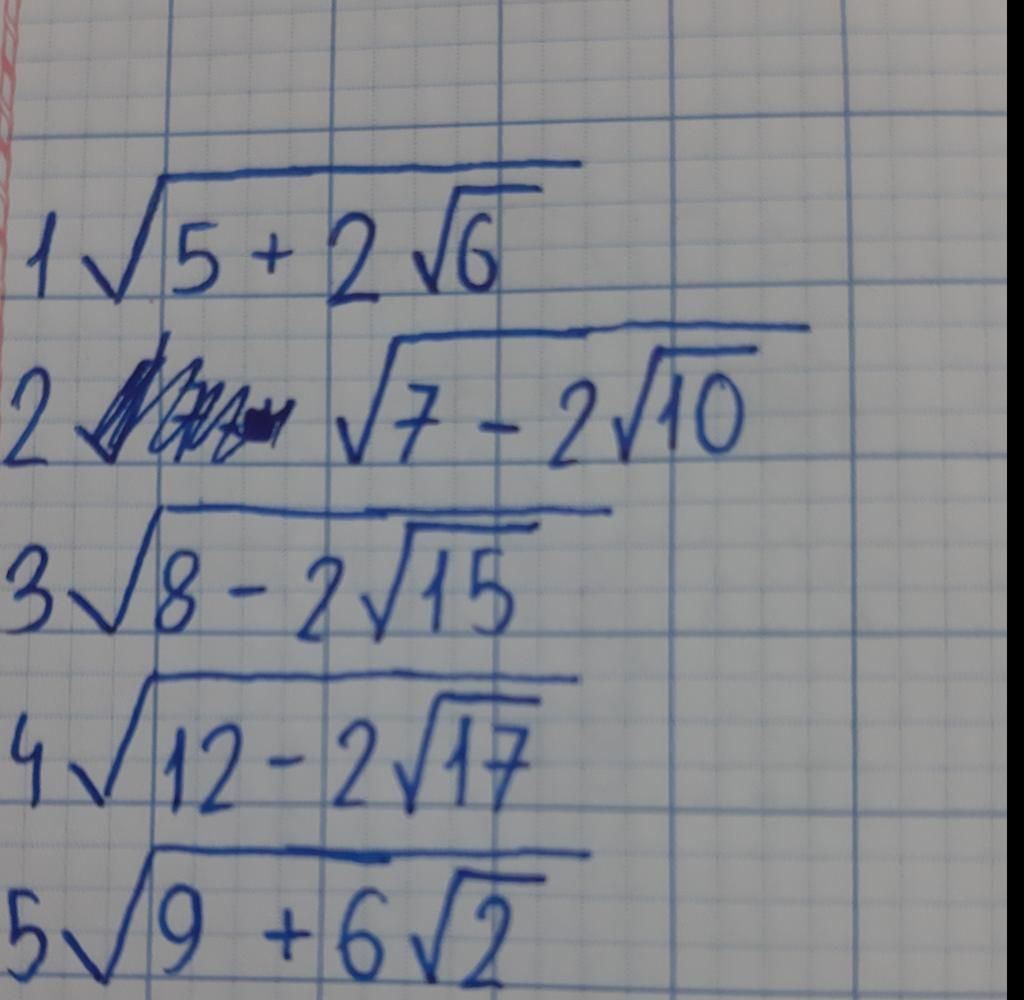 1 √(5 + 2√6)
2 √(7 - 2√10)
3 √(8 - 2√15)
4 √(12 - 2√17)
5 √(9 + 6√2)